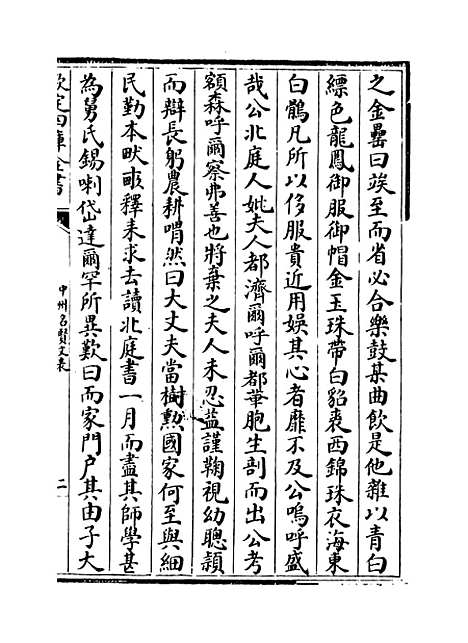 之金罍曰竢至而省必合樂鼓某曲飲是他雜以青白
縹色龍鳳御服御帽金玉珠帶白貂裘西錦珠衣海東
白鶻凡所以侈服貴近用娛其心者靡不及公嗚呼盛
哉公北庭人妣夫人都濟爾呼爾都華胞生剖而出公考
額森呼爾察弗善也將棄之夫人未忍益謹鞠視幼聰頴
而辯長躬農耕喟然曰大丈夫當樹勲國家何至與細
民勤本畎畮釋耒求去讀北庭書一月而盡其師學甚
為舅氏錫喇岱達爾罕所異歎曰而家門户其由子大
欽定四庫全書
中州名賢文表
二